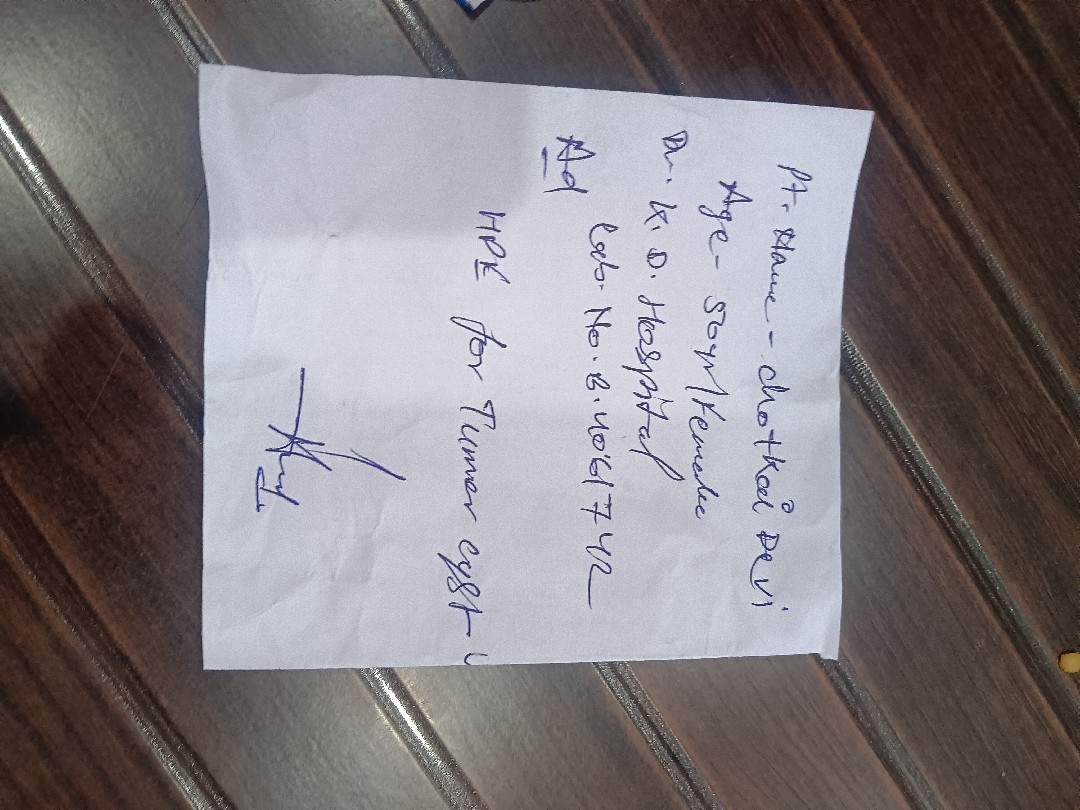 Pt. Name - Chotkai Devi
Age - 50yr/Female
Dr. K. D. Hospital
Ad
Lab. No. B.
HPE for Tumor cyst